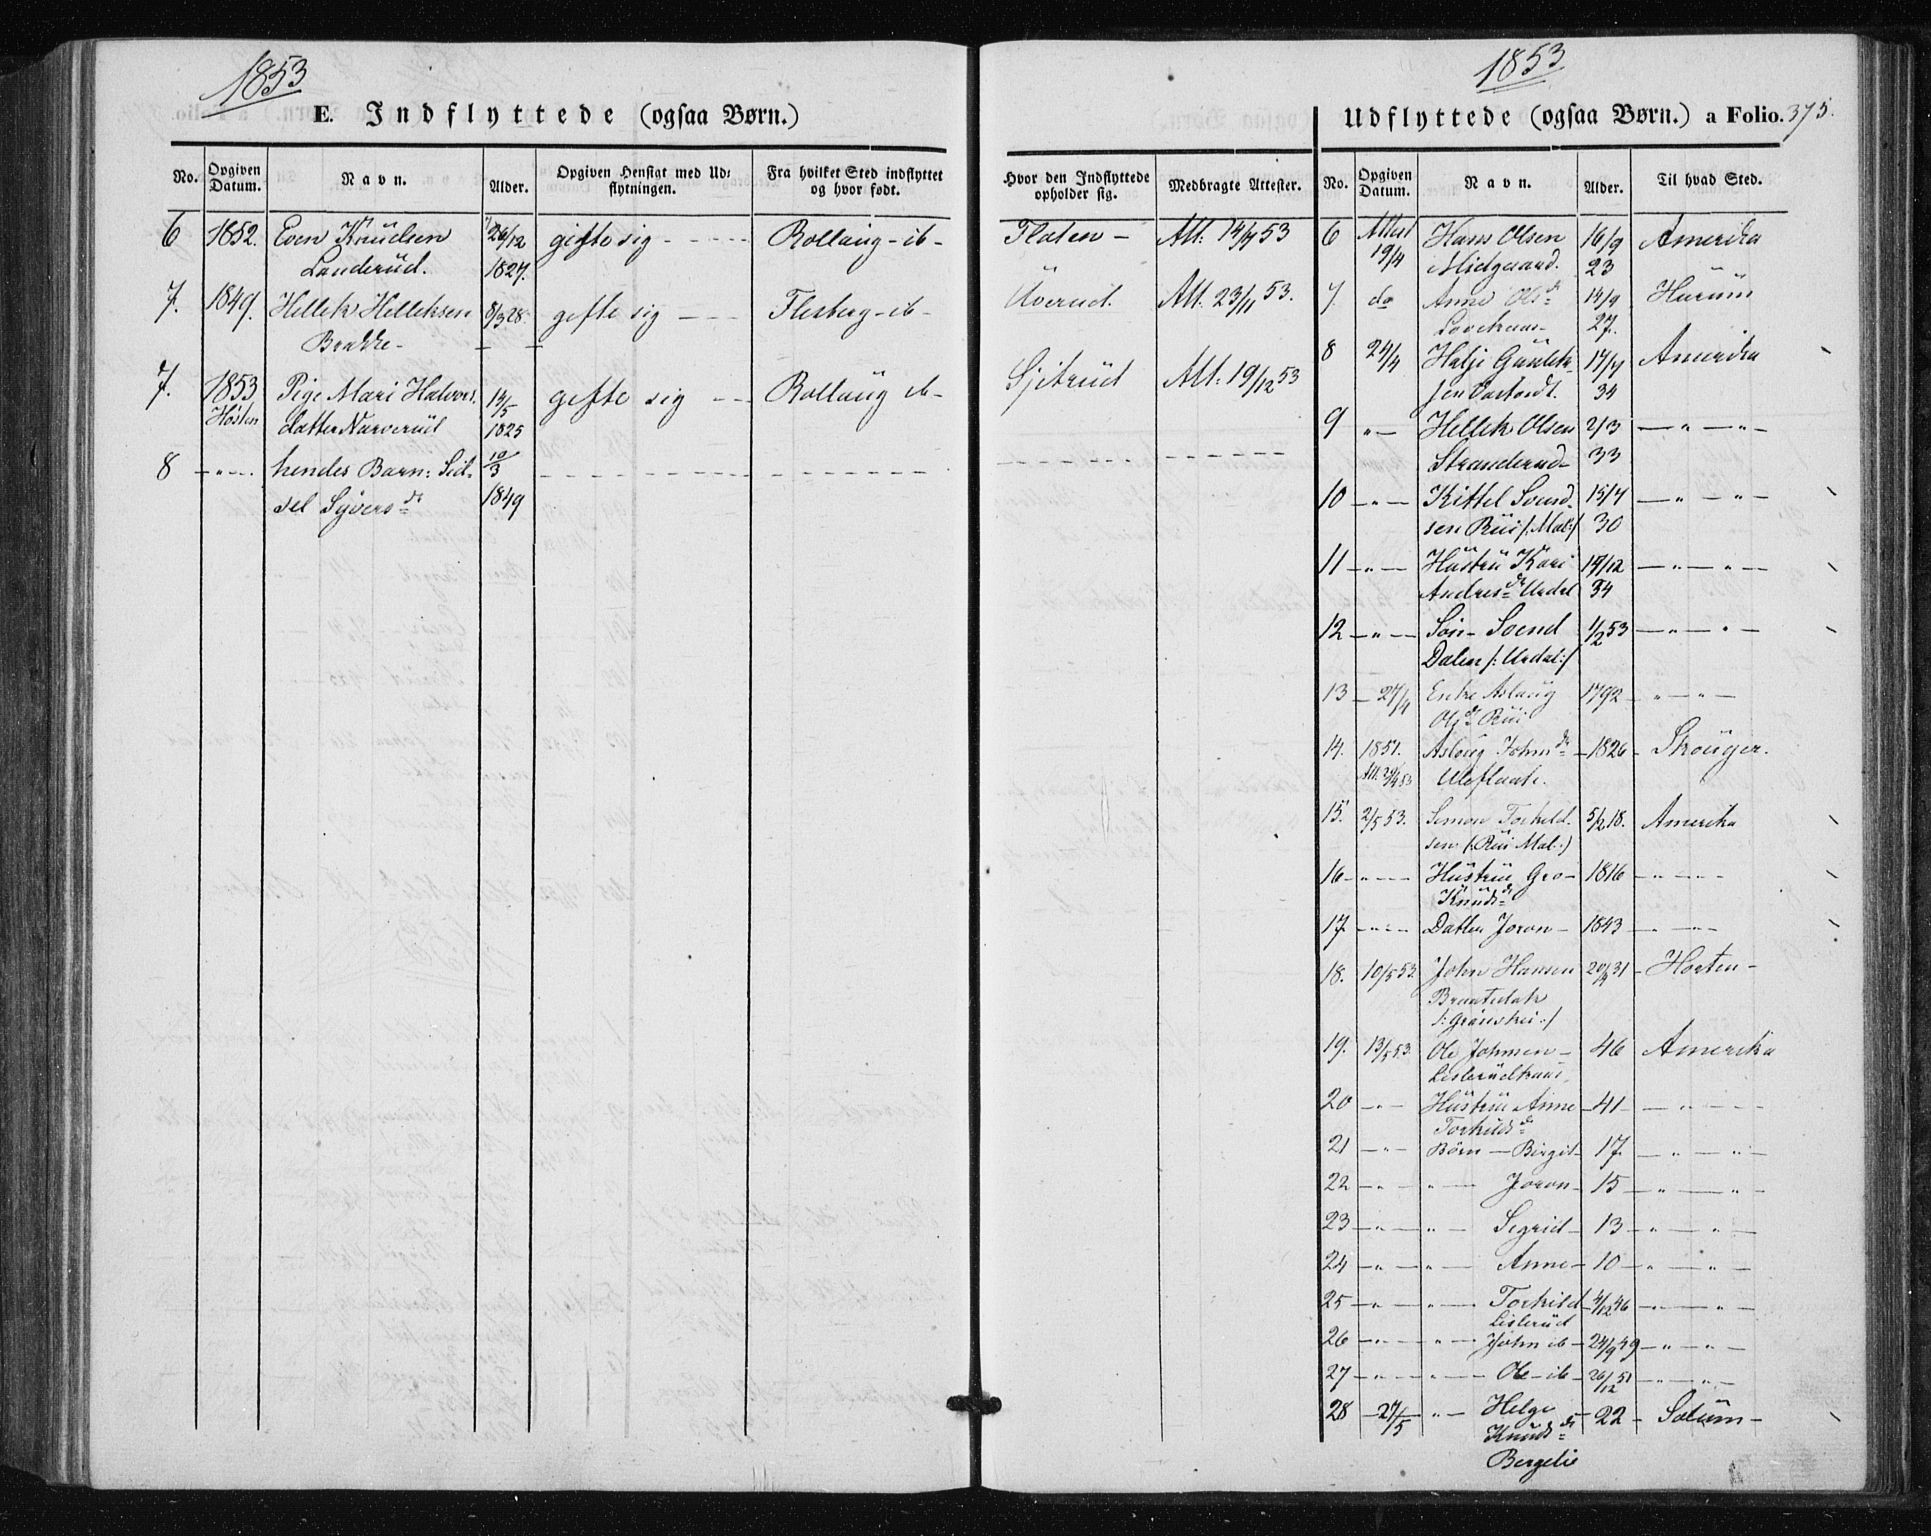 1853
E. Indflyttede (ogsaa Børn.)
No.
Opgiven Datum.
Navn.
Alder.
Opgiven Hensigt med Ud=
flytningen.
Fra hvilket Sted indflyttet
og hvor født.
6 1852. Even Knudsen 26/12 gifte sig - - - - Rollaug - ib -
Landerud. 1827.
7. 1849. Hellek Helleksen 8/3 28. gifte sig - - - Flesberg - ib -
Brække -
7. 1853 Pige Mari Halvors. 14/5 gifte sig - - Rollaug ib -
Høsten datter Narverud 1825
8 - " - hendes Barn: Sid- 10/3
sel Syversdr 1849
1853
Hvor den Indflyttede
opholder sig.
Medbragte Attester.
Floten - Att: 14/7 53
Att. 23/11 53.
Att: 19/12 53
Udflyttede (ogsaa Børn.) a Folio. 375.
No.
Opgiven Datum.
Navn.
Alder.
Til hvad Sted.
6 Attest Hans Olsen 16/9 Amerika
19/4 Midgaard. 23
7. do Anne Olsdr 14/9 Hurum
27.
8 24/4 Helje Gunlek- 17/7 Amerika
sen 34
9 " - Hellek Olsen 2/3 - " - " -
Stranderud - 33
10 - " - Kittel Svend- 15/7 - " - " -
sen Rui /: Mal:/ 30
11 - " - Hustru Kari 17/12 - " - " -
Andresdr Urdal 34
12 - " - Søn - Svend 1/2 53 - " - " -
Dalen /: Urdal:/
13 - 27/4 Enke Aslaug 1792 - " - " -
Olsdr Rui
14. 1851. Aslaug Johnsdr - 1826 - Skouger.
Uleflaate.
15. 2/5 53. Simon Torkild- 5/2 18. Amerika
sen (:Rui Mal:)
16 - " - Hustru Gro - 1816 - " - " -
Knudsdr
17. - " - Datter Joron - 1843 - " - " -
18. 10/5 53. John Hansen 20/4 31 - Horten -
19. 13/5 53. Ole Johnsen - 46 Amerika
20 - " - Hustru Anne - 41 - " - " -
Torkildsdr
21 - " - Børn - Birgit - 17. - " - " -
22 - " - " - Joron - 15 - " - " -
23 - " - " - Sigrid - 13 - " - " -
24 - " - " - Anne - 10 - " - " -
25 - " - " - Torkild - 4/12 46 - " - " -
Lislerud
26 - " - " - John ib - 24/9 49 - " - " -
27 - " - " - Ole - ib - 26/12 51 - " - " -
28 - 27/5 " - Helge - 22 - Solum -
Knudsdr
Bergelie